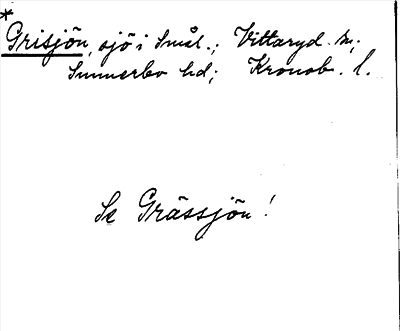 *
Grisjön, sjö i Smål.; Vittaryd. sn;
Sunnerbo hd; Kronob. l.
Se Grässjön!